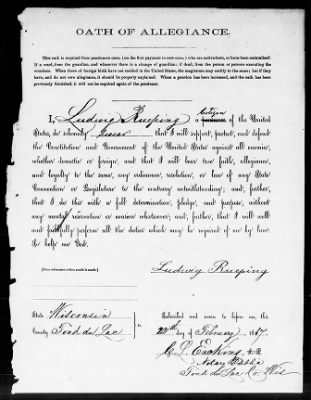 OATH OF ALLEGIANCE.
This oath is required from pensioners once, (on the first payment to new ones,) who are ourselves, or have been naturalized.
If a ward, from the guardian, and whenever there is a change of guardian; if deaf, from the person or persons executing the
vouchers. When those of foreign birth have not resided in the United States, the magistrate may certify to the same; but if they
have, and do not owe allegiance, it should be properly explained. When a pension has been increased, and the oath has been
previously furnished, it will not be required again of the pensioner.
I, Ludwig Rueping a Citizen of the United
States, do solemnly swear that I will support, protect, and defend
the Constitution and Government of the United States against all enemies,
whether domestic or foreign, and that I will bear true faith, allegiance,
and loyalty to the same, any ordinance, resolution, or law of any State
Convention or Legislature to the contrary notwithstanding; and, further,
that I do this with a full determination, pledge, and purpose, without
any mental reservation or evasion whatsoever; and, further, that I will well
and faithfully perform all the duties which may be required of me by law.
So help me God.
Ludwig Rueping
State Wisconsin
County Fond du Lac
Subscribed and sworn to before me, this
day of February 1867.
Notary Public
Fond du Lac Co Wis